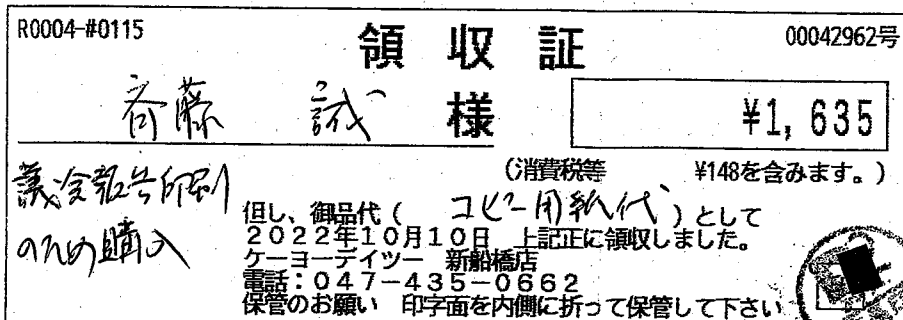 R0004-#0115
領収証
00042962号
斉藤 誠 様
¥1,635
(消費税等 ¥148を含みます。)
議会報告印刷
のため購入
但し、御品代( コピー用紙代 )として
2022年10月10日 上記正に領収しました。
ケーヨーデイツー 新船橋店
電話:047-435-0662
保管のお願い 印字面を内側に折って保管して下さい